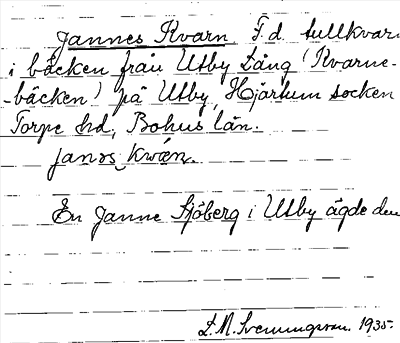 Jannes Kvarn F.d. tullkvarn
i bäcken från Utby Lång (Kvarne-
-bäcken) på Utby, Hjärtum socken
Torpe hd, Bohus län.
janəs kwán.
En Janne Sjöberg i Utby ägde den
L.M. Svenungsson. 1935.